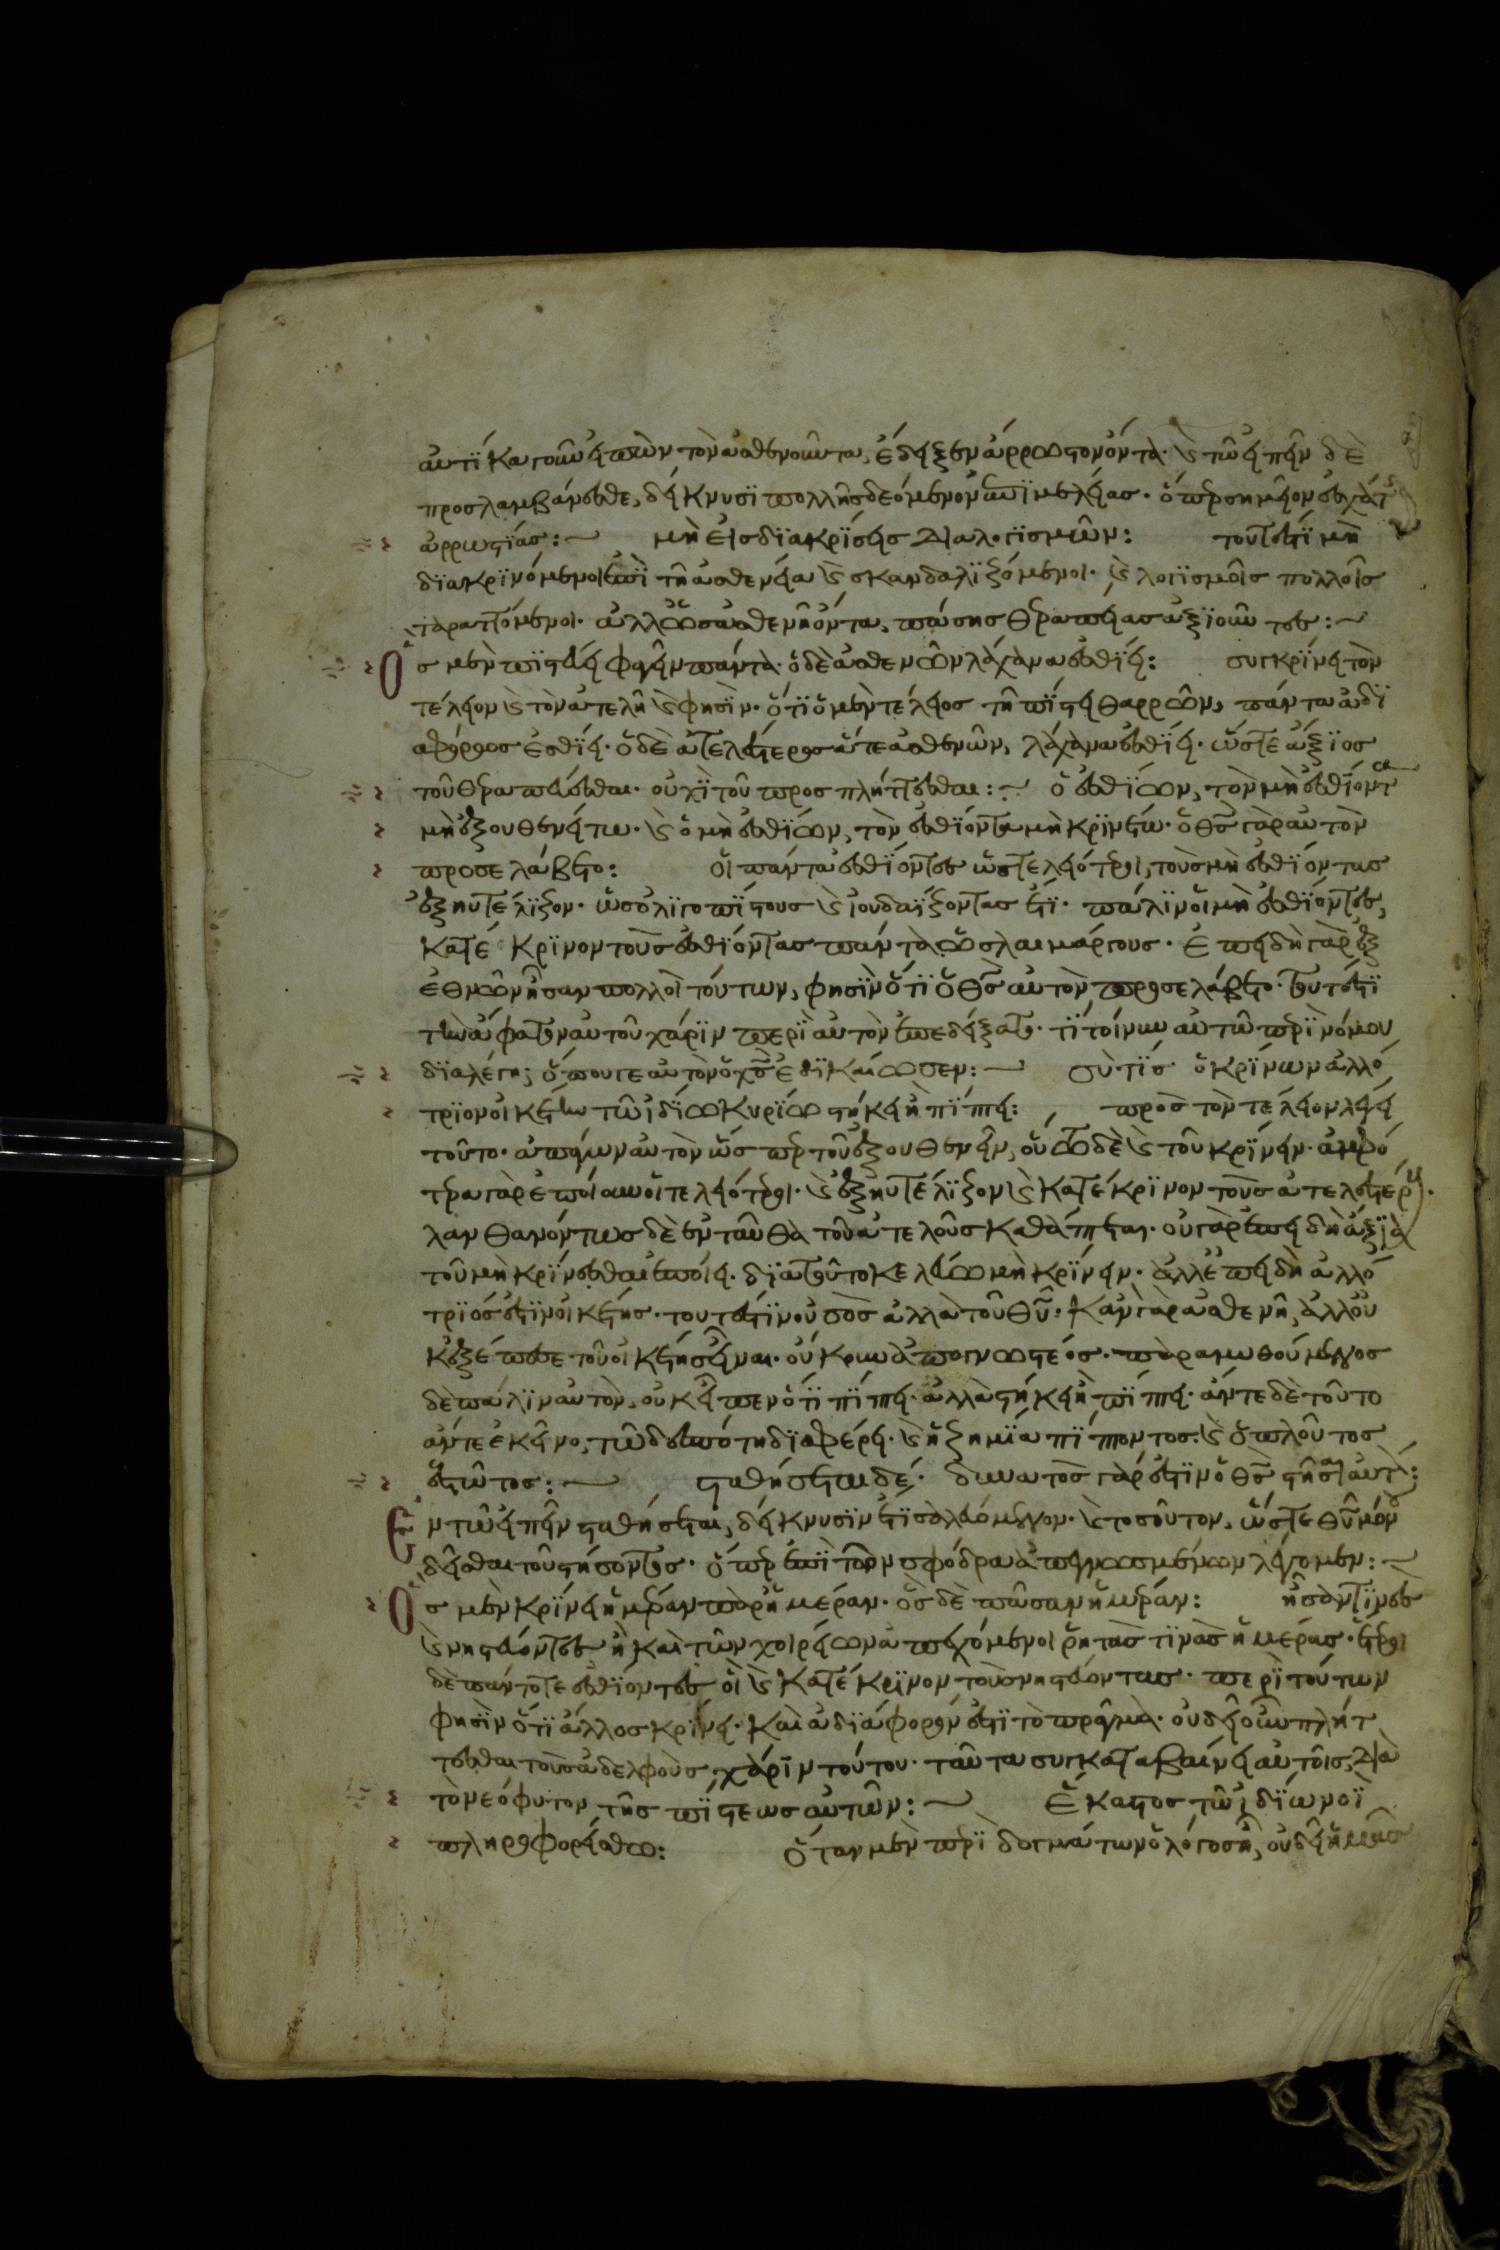 αυτίκα γοῦν εἰπὼν τὸν ἀσθενοῦντα, ἔδειξεν ἄρρωστον ὄντα· καὶ τῶ εἰπεῖν δὲ
προσλαμβάνεσθε, δείκνυσι πολλῆς δεόμενον ἐπιμελείας· ὅπερ σημεῖον ἐσχάτης
ἀρρωστίας:~ μὴ εἰς διακρίσεις διαλογισμῶν: τουτέστι μὴ
διακρινόμενοι ἐπὶ τῆ ἀσθενεία καὶ σκανδαλιζόμενοι· καὶ λογισμοῖς πολλοῖς
ταραττόμενοι· ἀλλ' ὡς ἀσθενῆ ὄντα, πάσης θεραπείας ἀξιοῦντες:~
Ὃς μὲν πιστεύει φαγεῖν πάντα· ὁ δὲ ἀσθενῶν λάχανα ἐσθίει: συγκρίνει τὸν
τέλειον καὶ τὸν ἀτελῆ καὶ φησίν· ὅτι ὁ μὲν τέλειος τῆ πίστει θαρρῶν, πάντα ἀδι
αφόρως ἐσθίει· ὁ δὲ ἀτελέστερος ἅτε ἀσθενῶν, λάχανα ἐσθίει· ὥστε ἄξιος
τοῦ θεραπεύεσθαι· οὐχὶ τοῦ προσπλήττεσθαι:~ ὁ ἐσθίων, τὸν μὴ ἐσθίοντα
μὴ ἐξουθενείτω· καὶ ὁ μὴ ἐσθίων, τὸν ἐσθίοντα μὴ κρινέτω· ὁ θς γὰρ αὐτὸν
προσελάβετο: οἱ πάντα ἐσθίοντες ὡς τελειότεροι, τοὺς μὴ ἐσθίοντας
ἐξηυτέλιζον· ὡς ὀλιγοπίστους καὶ ἰουδαΐζοντας ἔτι· πάλιν οἱ μὴ ἐσθίοντες,
κατέκρινον τοὺς ἐσθίοντας πάντα ὡς λαιμάργους· ἐπειδὴ γὰρ ἐξ
ἐθνῶν ἦσαν πολλοὶ τούτων, φησὶν ὅτι ὁ θς αὐτὸν προσελάβετο· τουτέστι
τὴν ἄφατον αὐτοῦ χάριν περὶ αὐτὸν ἐπεδείξατο· τί τοίνυν αὐτῶ περὶ νόμου
διαλέγη; ὅπου γε αὐτὸν ὁ χς ἐδικαίωσεν:~ σὺ τίς ὁ κρίνων ἀλλό
τριον οἰκέτην τῶ ἰδίω κυρίω στήκει ἢ πίπτει: πρὸς τὸν τέλειον λέγει
τοῦτο· ἀπάγων αὐτὸν ὥσπερ τοῦ ἐξουθενεῖν, οὕτω δὲ καὶ τοῦ κρίνειν· ἀμφό
τερα γὰρ ἐποίουν οἱ τελειότεροι· καὶ ἐξηυτέλιζον καὶ κατέκρινον τοὺς ἀτελεστέρους·
λανθανόντως δὲ ἐνταῦθα τοῦ ἀτελοῦς καθάπτεται· οὐ γὰρ ἐπειδὴ ἄξια
τοῦ μὴ κρίνεσθαι ἐποίει· διὰ τοῦτο κελεύω μὴ κρίνειν· ἀλλ' ἐπειδὴ ἀλλό
τριός ἐστιν οἰκέτης· τουτέστιν οὐ σὸς ἀλλὰ τοῦ θυ· κἂν γὰρ ἀσθενῆ, ἀλλ' οὐ
κ ἐξέπεσε τοῦ οἰκέτης εἶναι· οὐκουν ἀπογνωστέος· παραμυθούμενος
δὲ πάλιν αὐτὸν, οὐκ εἶπεν ὅτι πίπτει· ἀλλὰ στήκει ἢ πίπτει· ἄν τε δὲ τοῦτο
ἄν τε ἐκεῖνο, τῶ δεσπότη διαφέρει· καὶ ἡ ζημία πίπτοντος· καὶ ὁ πλοῦτος
ἑστῶτος:~ σταθήσεται δέ· δυνατὸς γάρ ἐστιν ὁ θς στῆσαι αὐτόν:
Ἐν τῶ εἰπεῖν σταθήσεται, δείκνυσιν ἔτι σαλευόμενον· καὶ τοσοῦτον, ὥστε θυ μόνου
δεῖσθαι τοῦ στήσοντος· ὅπερ ἐπὶ τῶν σφόδρα ἀπεγνωσμένων λέγομεν:~
Ὃς μὲν κρίνει ἡμέραν παρ' ἡμέραν· ὃς δὲ πᾶσαν ἡμέραν: ἦσάν τινες
καὶ νηστεύοντες ἢ καὶ τῶν χοιρείων ἀπεχόμενοι ῥητὰς τινὰς ἡμέρας· ἕτεροι
δὲ πάντοτε ἐσθίοντες οἳ καὶ κατέκρινον τοὺς νηστεύοντας· περὶ τούτων
φησὶν ὅτι ἄλλος κρίνει· καὶ ἀδιάφορόν ἐστι τὸ πρᾶγμα· οὐ δεῖ οὖν πλήτ
τεσθαι τοὺς ἀδελφοὺς χάριν τούτου· ταῦτα συγκαταβαίνει αὐτοῖς, διὰ
τὸ νεόφυτον τῆς πίστεως αὐτῶν:~ Ἕκαστος τῶ ἰδίω νοῒ
πληροφορείσθω: Ὅταν μὲν περὶ δογμάτων ὁ λόγος ἦ, οὐδεὶ ἡμᾶς